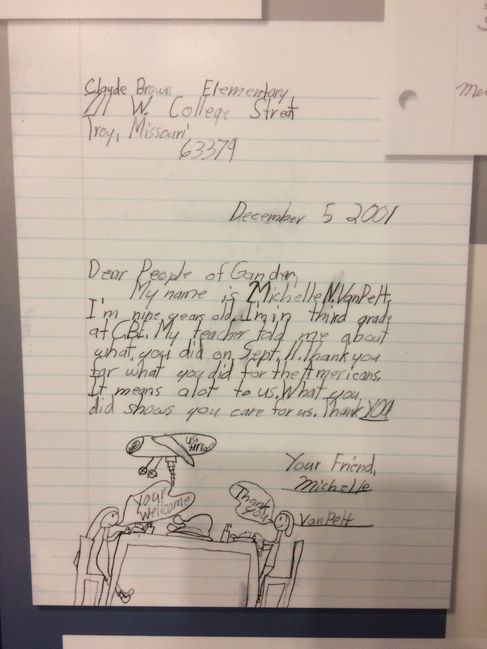 Clayde Brown Elementary
W. College Streat
Troy, Missouri
63379
December 5 2001
Dear People of Gander,
My name is Michelle N. VanPelt.
I'm nine years old. I'm in third grade
at CBE. My teacher told me about
what you did on Sept. 11. Thank you
for what you did for the Americans.
It means alot to us. What you
did shows you care for us. Thank YOU
Your Friend,
Michelle
VanPelt
Your
Wellcome
Thank
you